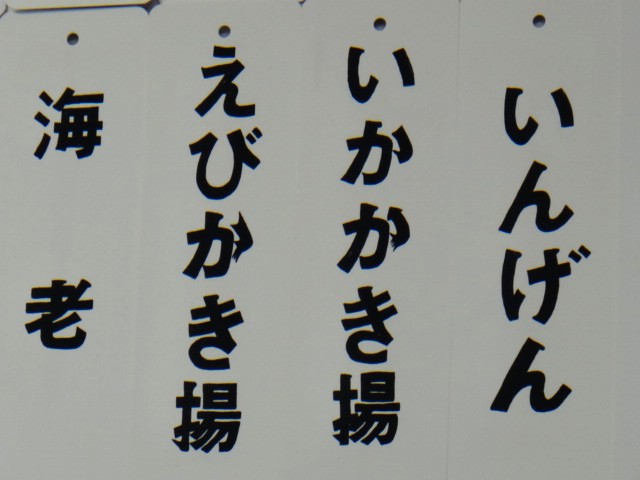 いんげん
いかかき揚
えびかき揚
海老